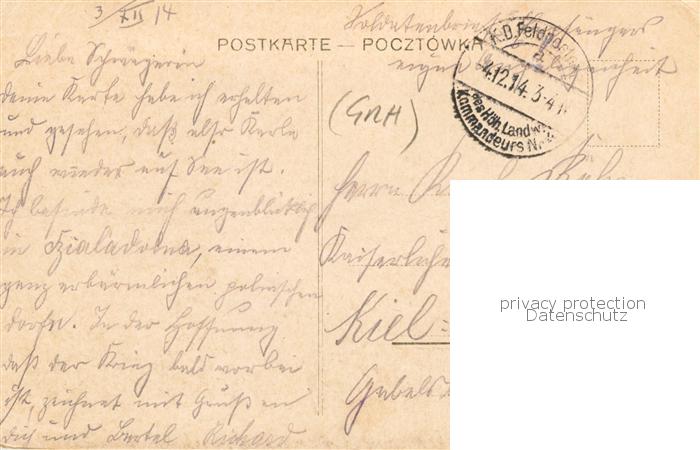 3/XII 14
Soldatenbrief
eigne Angelegenheit
POSTKARTE — POCZTÓWKA
K.D. Feldpost
4.12.14. 3-4
des Höh. Landw.
Kommandeurs N
(GRH)
Liebe Schwägerin
deine Karte habe ich erhalten
und gesehen, daß also Karle
auch wieder auf See ist.
Ich befinde mich augenblicklich
in Dzialadolna, einem
ganz erbärmlichen polnischen
Dorfe. In der Hoffnung
daß der Krieg bald vorbei
ist, zeichnet mit Gruß an
dich und Bertel Richard
Herrn
Kaiserliche
Kiel -
Gabels
privacy protection
Datenschutz